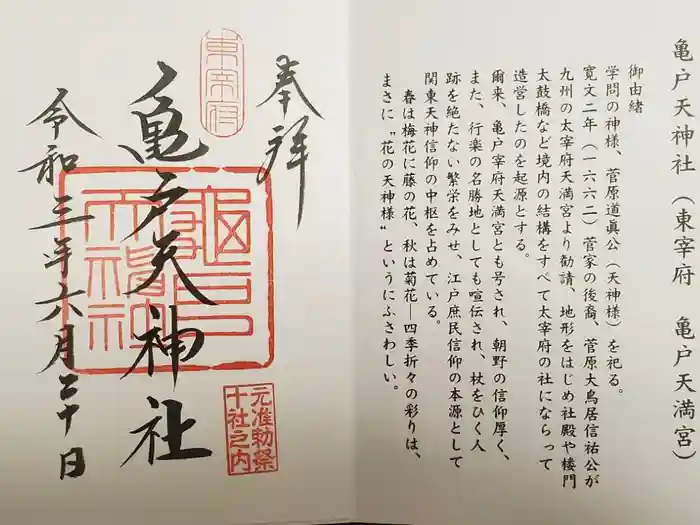 亀戸天神社（東宰府　亀戸天満宮）
御由緒
学問の神様、菅原道眞公（天神様）を祀る。
寛文二年（一六六二）菅家の後裔、菅原大鳥居信祐公が
九州の太宰府天満宮より勧請、地形をはじめ社殿や楼門
太鼓橋など境内の結構をすべて太宰府の社にならって
造営したのを起源とする。
爾来、亀戸宰府天満宮とも号され、朝野の信仰厚く、
また、行楽の名勝地としても喧伝され、杖をひく人
跡を絶たない繁栄をみせ、江戸庶民信仰の本源として
関東天神信仰の中枢を占めている。
春は梅花に藤の花、秋は菊花―四季折々の彩りは、
まさに〝花の天神様〟というにふさわしい。
奉拝
東宰府
亀戸天神社
龜戸
天神社
元准勅祭
十社之内
令和三年六月二十日